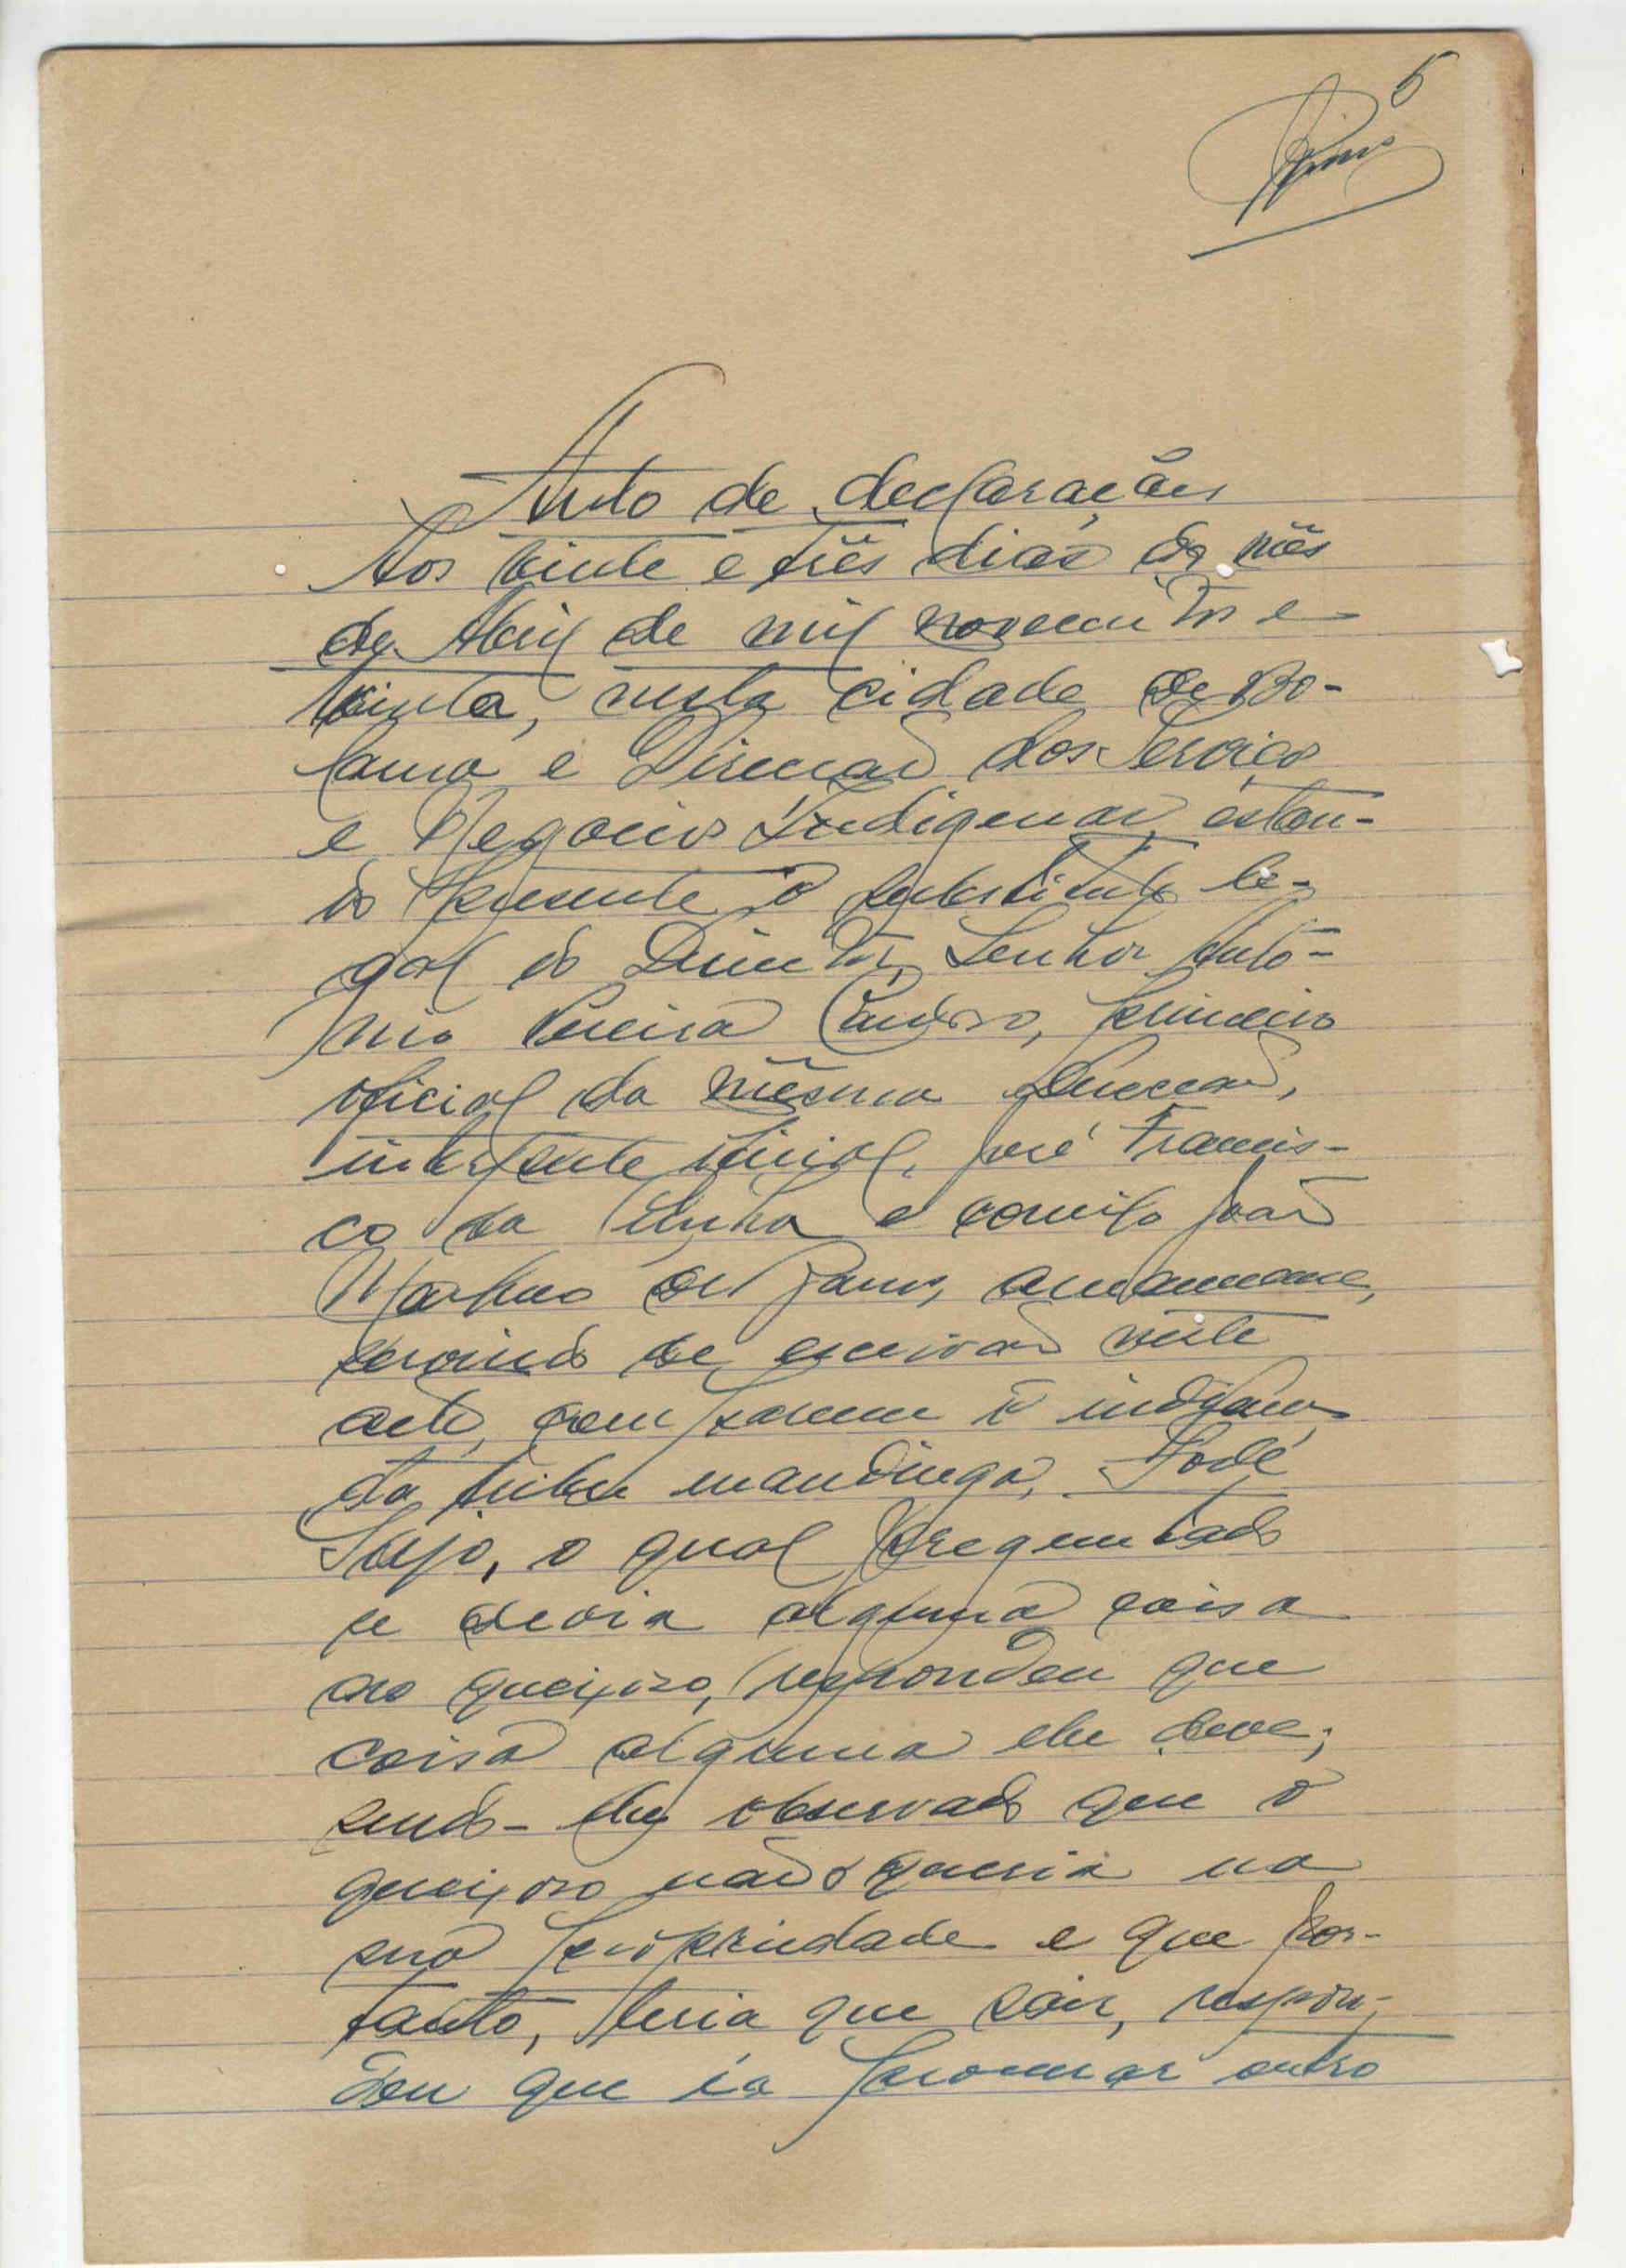 5
Auto de declarações
Aos vinte e três dias do mês
de Abril de mil novecentos e
trinta, nesta cidade de Bo-
lama e Direcção dos Serviços
e Negocios Indigenas, estan-
do presente o substituto le-
gal do Director, Senhor Antó-
nio Pereira Cardoso, primeiro
oficial da mêsma Direcção,
intérprete oficial, José Francis-
co da Cunha e comigo João
de Barros, amanuense,
servindo de escrivão neste
acto, compareceu o indigena
da tribu mandinga, Fodé
Sujo, o qual preguntado
se devia alguma coisa
ao queixoso, respondeu que
coisa alguma ele deve;
sendo-lhe observado que o
queixoso não o queria na
sua propriedade e que por-
tanto, teria que sair, respon-
deu que ia procurar outro